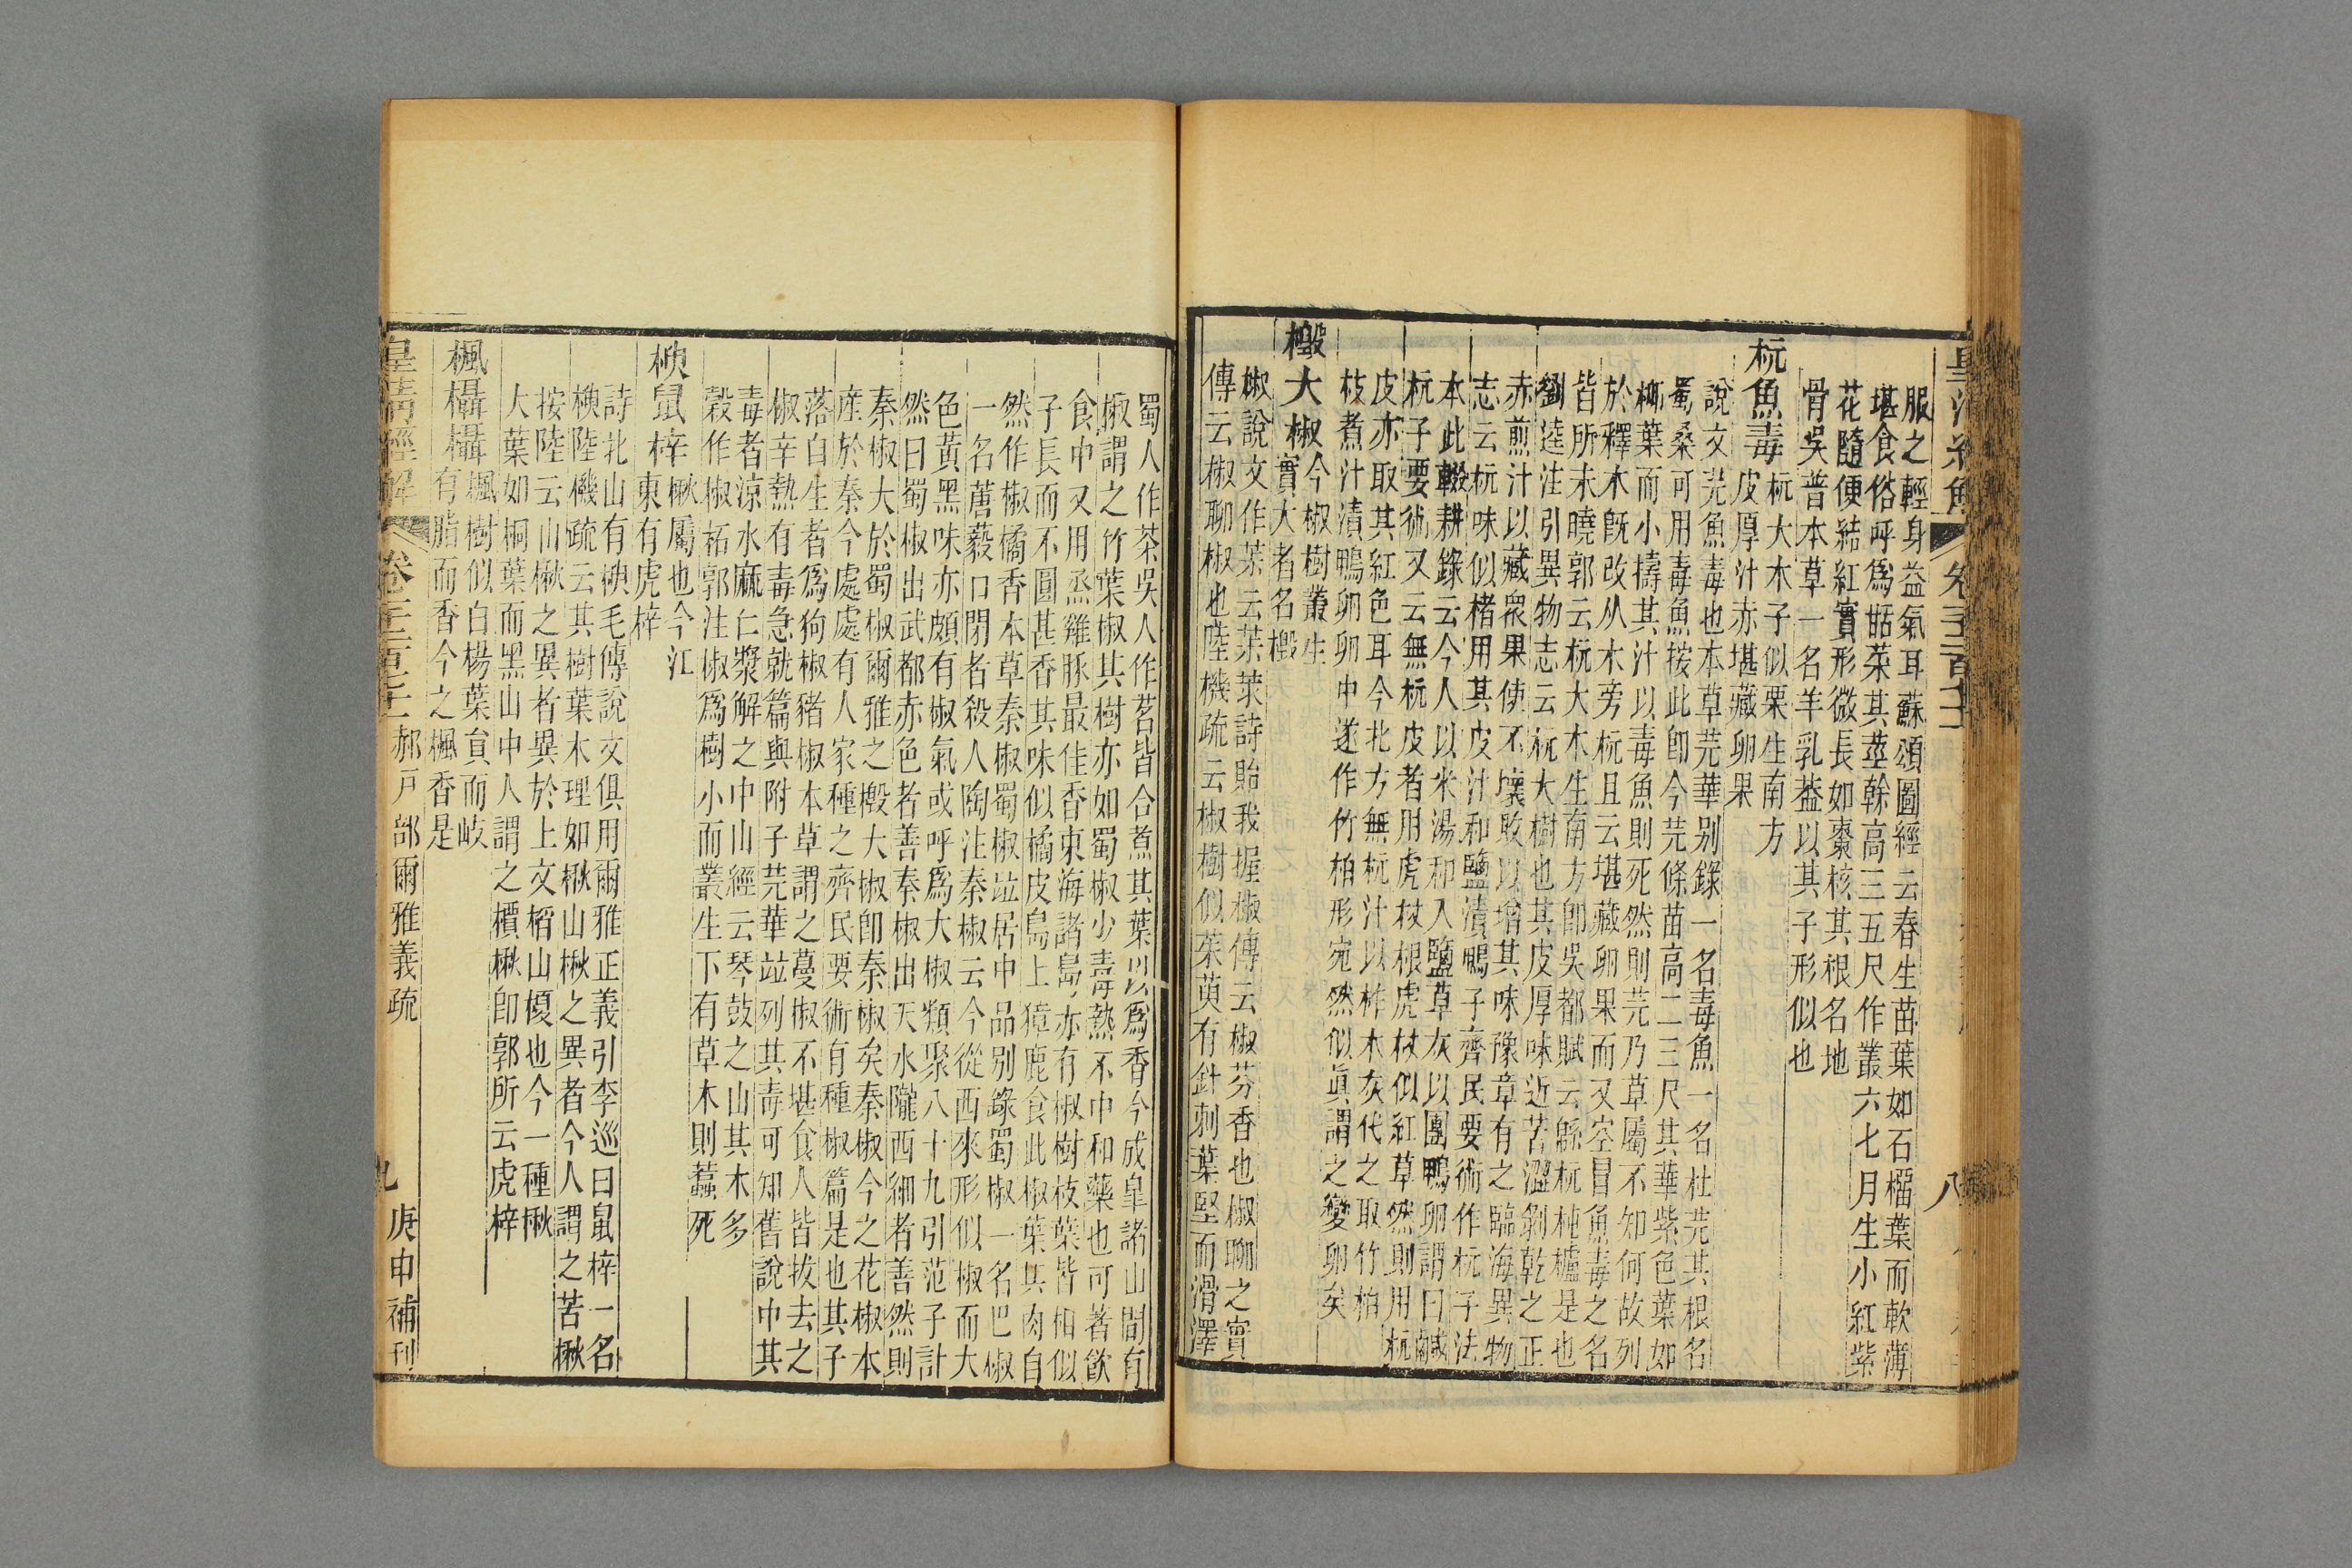 服之輕身益氣耳蘇頌圖經云春生苗葉如石榴葉而軟薄
堪食俗呼爲甜菜其莖榦高三五尺作叢六七月生小紅紫
花隨便結紅實形微長如棗核其根名地
骨吳普本草一名羊乳葢以其子形似也
杬魚毒
杬大木子似栗生南方
皮厚汁赤堪藏卵果
說文芫魚毒也本草芫華別錄一名毒魚一名杜芫其根名
蜀桑可用毒魚按此卽今芫條苗高二三尺其華紫色葉如
柳葉而小擣其汁以毒魚則死然則芫乃草屬不知何故列
於釋木旣改从木旁杬且云堪藏卵果而又空冒魚毒之名
皆所未曉郭云杬大木生南方卽吳都賦云緜杬杶櫨是也
劉逵注引異物志云杬大樹也其皮厚味近苦澀剝乾之正
赤煎汁以藏衆果使不壞敗以增其味豫章有之臨海異物
志云杬味似楮用其皮汁和鹽漬鴨子齊民要術作杬子法
本此輟耕錄云今人以米湯和入鹽草灰以團鴨卵謂曰鹹
杬子要術又云無杬皮者用虎杖根虎杖似紅草然則用杬
皮亦取其紅色耳今北方無杬汁以柞木灰代之取竹柏
枝煮汁漬鴨卵卵中遂作竹柏形宛然似眞謂之變卵矣
檓大椒
今椒樹叢生
實大者名檓
椒說文作茮云茮莍詩貽我握椒傳云椒芬香也椒聊之實
傳云椒聊椒也陸機疏云椒樹似茱萸有針刺葉堅而滑澤
蜀人作茶吳人作茗皆合煮其葉以爲香今成皐諸山間有
椒謂之竹葉椒其樹亦如蜀椒少毒熱不中和藥也可著飮
食中又用烝雞豚最佳香東海諸島亦有椒樹枝葉皆相似
子長而不圓甚香其味似橘皮島上獐鹿食此椒葉其肉自
然作椒橘香本草秦椒蜀椒竝居中品別錄蜀椒一名巴椒
一名蓎藙口閉者殺人陶注秦椒云今從西來形似椒而大
色黃黑味亦頗有椒氣或呼爲大椒類聚八十九引范子計
然曰蜀椒出武都赤色者善秦椒出天水隴西細者善然則
秦椒大於蜀椒爾雅之檓大椒卽秦椒矣秦椒今之花椒本
產於秦今處處有人家種之齊民要術有種椒篇是也其子
落自生者爲狗椒豬椒本草謂之蔓椒不堪食人皆拔去之
椒辛熱有毒急就篇與附子芫華竝列其毒可知舊說中其
毒者涼水麻仁漿解之中山經云琴鼓之山其木多
穀作椒柘郭注椒爲樹小而叢生下有草木則蠚死
楰鼠梓
楸屬也今江
東有虎梓
詩北山有楰毛傳說文俱用爾雅正義引李巡曰鼠梓一名
楰陸機疏云其樹葉木理如楸山楸之異者今人謂之苦楸
按陸云山楸之異者異於上文槄山榎也今一種楸
大葉如桐葉而黑山中人謂之檟楸卽郭所云虎梓
楓欇欇
楓樹似白楊葉員而歧
有脂而香今之楓香是
皇清經解
郝戶部爾雅義疏
九
庚申補刊